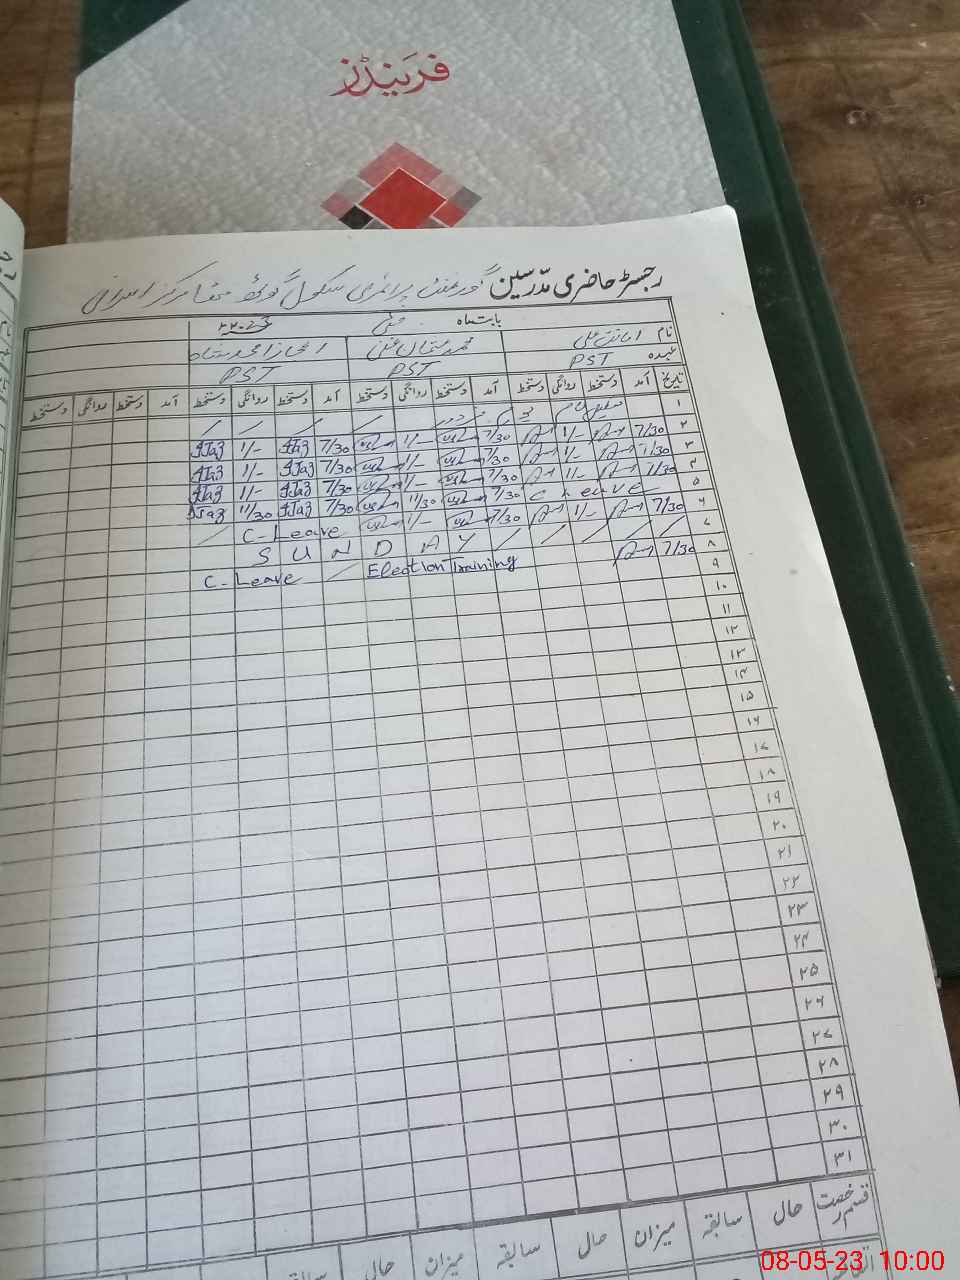 فرینڈز
رجسٹر حاضری مدّرسین گورنمنٹ پرائمری سکول گوٹھ
بابت ماہ مئی
نام امانت علی محمد
عہدہ PST PST PST
تاریخ آمد دستخط روانگی دستخط آمد دستخط روانگی دستخط آمد دستخط روانگی دستخط آمد دستخط روانگی دستخط
۱ / / / /
۲ 7/30 1/- 7/30 1/- 7/30 IJaz 1/- IJaz
۳ 7/30 1/- 7/30 1/- 7/30 IJaz 1/- IJaz
۴ 7/30 1/- 7/30 1/- 7/30 IJaz 1/- IJaz
۵ C Leave 7/30 11/30 7/30 IJaz 11/30 IJaz
۶ 7/30 1/- 7/30 1/- C-Leave /
۷ S U N D A Y / / / / /
۸ 7/30 Election Training C-Leave /
۹
۱۰
۱۱
۱۲
۱۳
۱۴
۱۵
۱۶
۱۷
۱۸
۱۹
۲۰
۲۱
۲۲
۲۳
۲۴
۲۵
۲۶
۲۷
۲۸
۲۹
۳۰
۳۱
قسم رخصت حال سابقہ میزان حال سابقہ میزان حال سابقہ
08-05-23 10:00